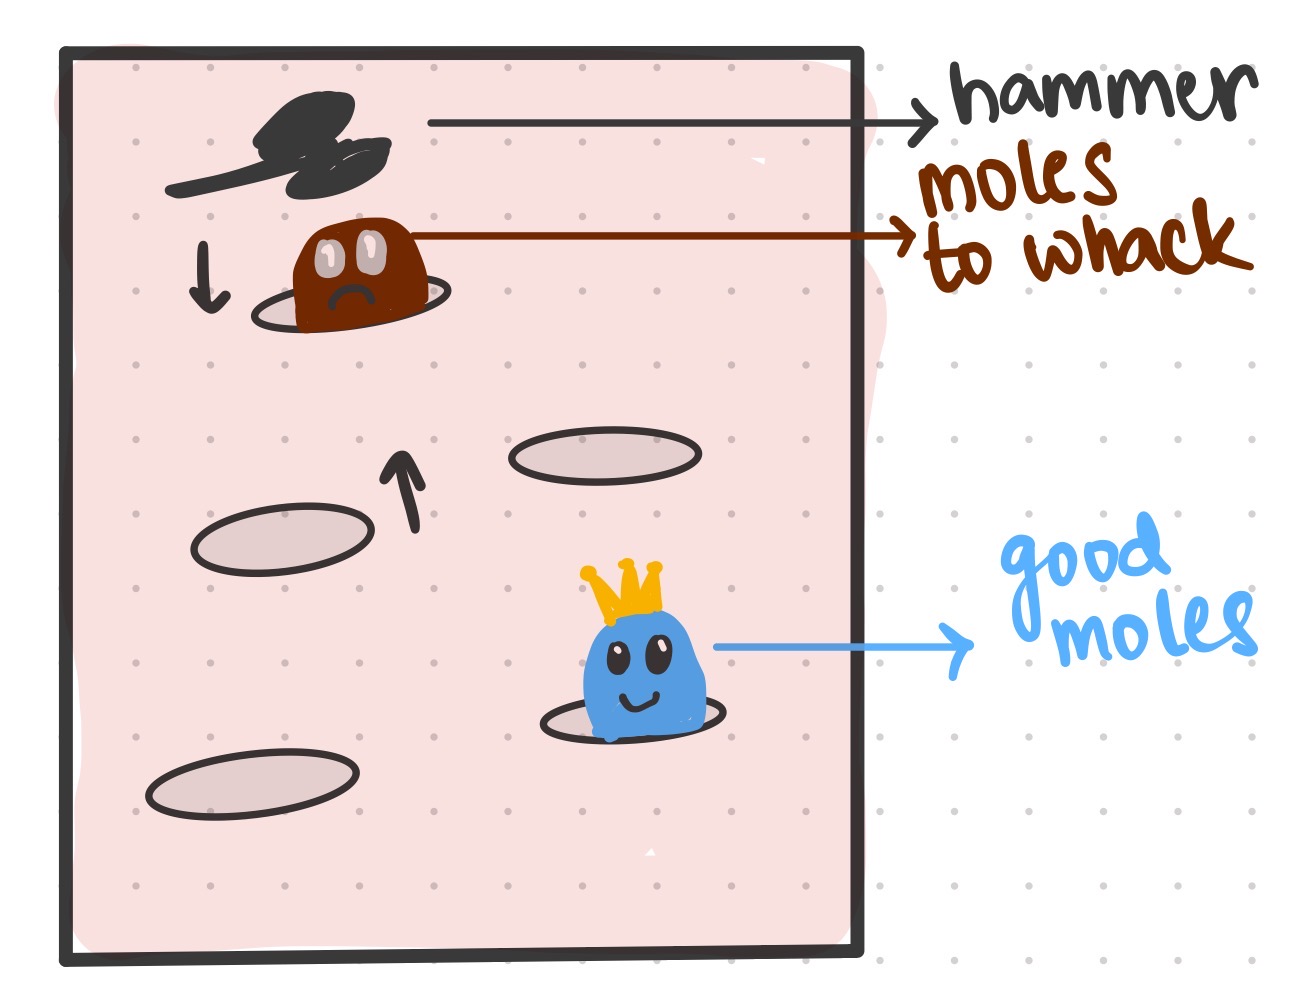 hammer
moles
to whack
good
moles